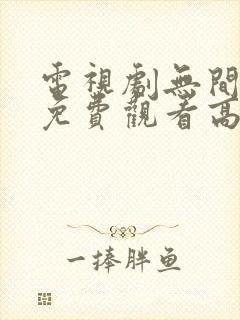 電視劇無間
免費觀看高
一捧胖鱼